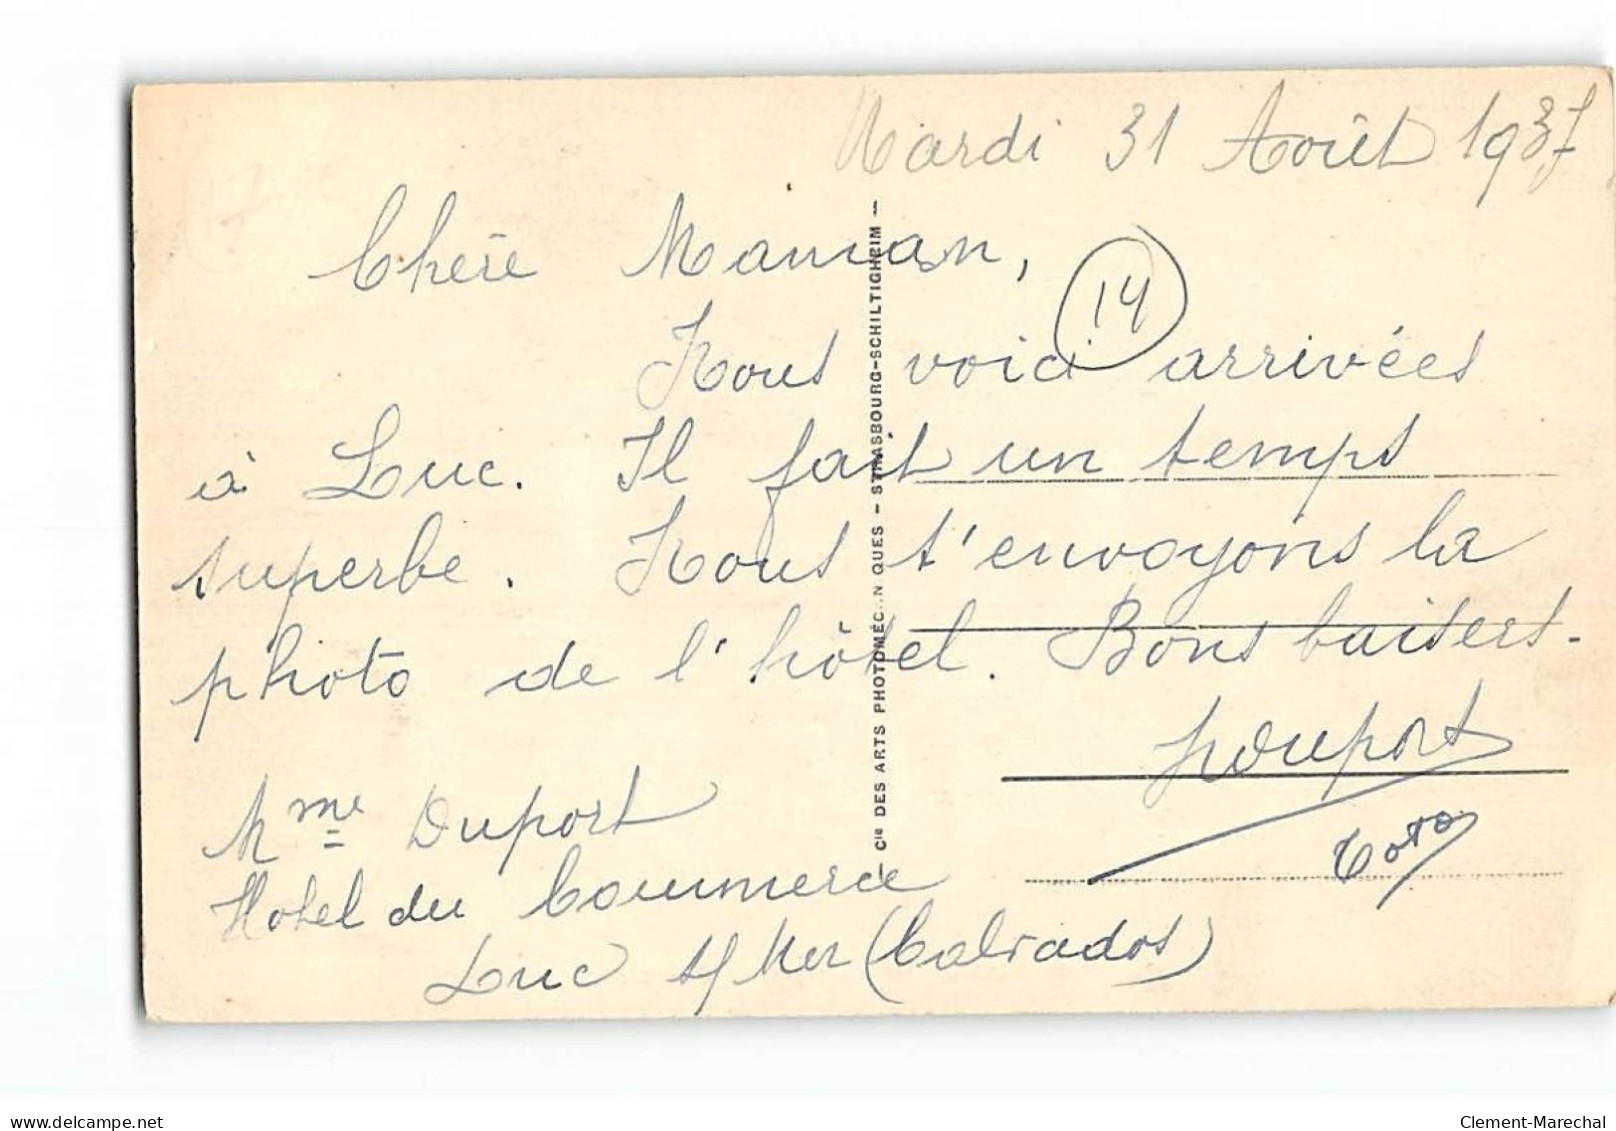 Mardi 31 Août 1937
Chère Maman,
14
Nous voici arrivées
à Luc. Il fait un temps
superbe. Nous t'envoyons la
photo de l'hôtel. Bons baisers.
Toto
Mme Duport
Hotel du Commerce
Luc s/ Mer (Calvados)
Cie DES ARTS PHOTOMÉC N QUES - STRASBOURG-SCHILTIGHEIM -
https://www.delcampe.net
Clement-Marechal